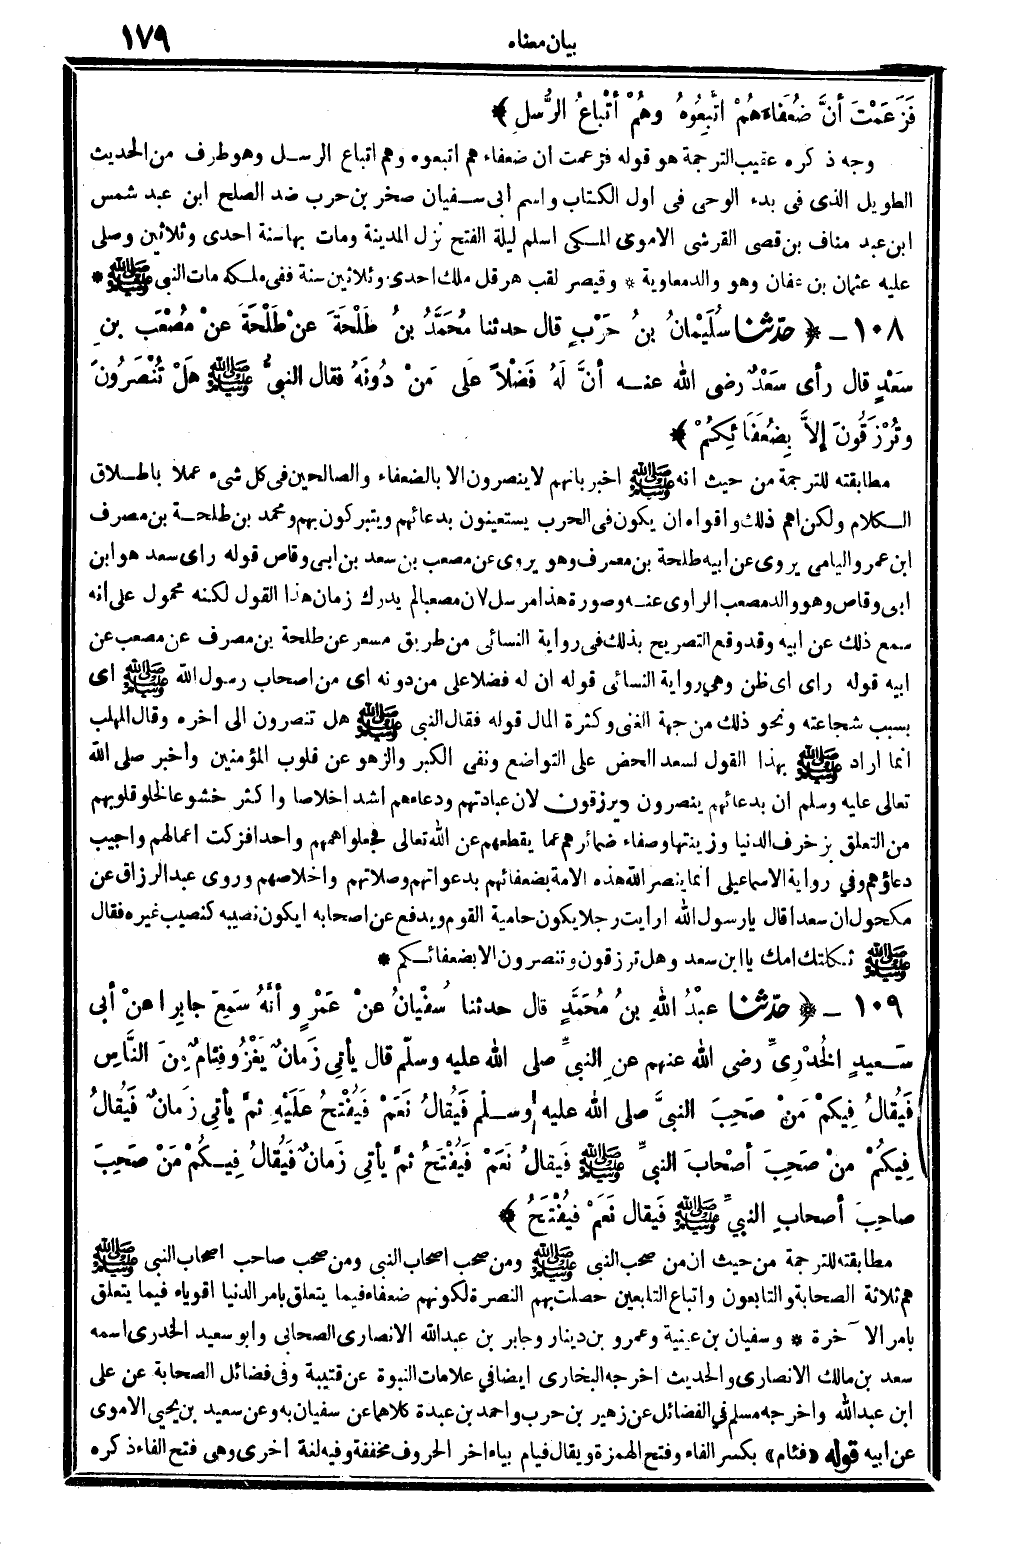 بيان معناه ١٧٩
فَزَعَمْتَ أنَّ ضُعَفَاءَهُمْ اتَّبَعُوهُ وهُمْ أتْباعُ الرُّسلِ ﴾
وجه ذكره عقيب الترجمة هو قوله فزعمت ان ضعفاءهم اتبعوه وهم اتباع الرسل وهو طرف من الحديث
الطويل الذى فى بدء الوحى فى اول الكتاب واسم أبى سفيان صخر بن حرب ضد الصلح ابن عبد شمس
ابن عبد مناف بن قصى القرشى الاموى المكى اسلم ليلة الفتح نزل المدينة ومات بها سنة احدى وثلاثين وصلى
عليه عثمان بن عفان وهو والد معاوية * وقيصر لقب هرقل ملك احدى وثلاثين سنة ففى ملكه مات النبى ﷺ *
١٠٨ ـ ﴿ حدّثنا سُلَيْمانُ بنُ حَرْبٍ قال حدثنا مُحَمَّدُ بنُ طَلْحَةَ عَنْ طَلْحَةَ عَنْ مُصْعَبِ بنِ
سَعْدٍ قال رأى سَعْدٌ رضى الله عنه أنَّ لَهُ فَضْلاً عَلَى مَنْ دُونَهُ فقال النبىُّ ﷺ هَلْ تُنْصَرُونَ
وتُرْزَقُونَ إلاَّ بِضُعَفَائِكُمْ ﴾
مطابقته للترجمة من حيث انه ﷺ اخبر بانهم لا ينصرون الا بالضعفاء والصالحين فى كل شىء عملا باطلاق
الكلام ولكن اهم ذلك واقواه ان يكون فى الحرب يستعينون بدعائهم ويتبركون بهم ومحمد بن طلحة بن مصرف
ابن عمرو اليامى يروى عن ابيه طلحة بن مصرف وهو يروى عن مصعب بن سعد بن ابى وقاص قوله راى سعد هو ابن
ابى وقاص وهو والد مصعب الراوى عنه وصورة هذا مرسل لان مصعبا لم يدرك زمان هذا القول لكنه محمول على انه
سمع ذلك عن ابيه وقد وقع التصريح بذلك فى رواية النسائى من طريق مسعر عن طلحة بن مصرف عن مصعب عن
ابيه قوله راى اى ظن وهى رواية النسائى قوله ان له فضلا على من دونه اى من اصحاب رسول الله ﷺ اى
بسبب شجاعته ونحو ذلك من جهة الغنى وكثرة المال قوله فقال النبى ﷺ هل تنصرون الى آخره وقال المهلب
انما اراد ﷺ بهذا القول لسعد الحض على التواضع ونفى الكبر والزهو عن قلوب المؤمنين وأخبر صلى الله
تعالى عليه وسلم ان بدعائهم ينصرون ويرزقون لان عبادتهم ودعاءهم اشد اخلاصا واكثر خشوعا لخلو قلوبهم
من التعلق بزخرف الدنيا وزينتها وصفاء ضمائرهم عما يقطعهم عن الله تعالى فجعلوا همهم واحدا فزكت أعمالهم واجيب
دعاؤهم وفي رواية الاسماعيلى انما ينصر الله هذه الامة بضعفائهم بدعواتهم وصلاتهم واخلاصهم وروى عبد الرزاق عن
مكحول ان سعدا قال يا رسول الله ارايت رجلا يكون حامية القوم ويدفع عن اصحابه ايكون نصيبه كنصيب غيره فقال
ﷺ ثكلتك امك يا ابن سعد وهل ترزقون وتنصرون الا بضعفائكم *
١٠٩ ـ ﴿ حدّثنا عبْدُ اللهِ بنُ مُحَمَّدٍ قال حدثنا سُفْيانُ عنْ عَمْرٍو أنَّهُ سَمِعَ جابِراً عنْ أبى
سَعيدٍ الخُدْرىِّ رضى الله عنهم عنِ النبىِّ صلى الله عليه وسلّم قال يأتِى زَمانٌ يَغْزُو فِئامٌ مِنَ النَّاسِ
فَيُقالُ فِيكمْ مَنْ صَحِبَ النبىَّ صلى الله عليه وسلم فَيُقالُ نَعَمْ فَيُفْتَحُ عَلَيْهِ ثمَّ يأتِى زَمانٌ فَيُقالُ
فِيكُمْ منْ صَحِبَ أصْحابَ النبىِّ ﷺ فَيقالُ نَعَمْ فَيُفْتَحُ ثمَّ يأتِى زَمانٌ فَيُقالُ فِيكُمْ مَنْ صَحِبَ
صاحِبَ أصحابِ النبيِّ ﷺ فَيقال نَعَمْ فيُفْتَحُ ﴾
مطابقته للترجمة من حيث ان من صحب النبى ﷺ ومن صحب اصحاب النبى ومن صحب صاحب اصحاب النبى ﷺ
هم ثلاثة الصحابة والتابعون واتباع التابعين حصلت بهم النصرة لكونهم ضعفاء فيما يتعلق بامر الدنيا اقوياء فيما يتعلق
بامر الآخرة * وسفيان بن عيينة وعمرو بن دينار وجابر بن عبدالله الانصارى الصحابى وابو سعيد الخدرى اسمه
سعد بن مالك الانصارى والحديث اخرجه البخارى ايضا في علامات النبوة عن قتيبة وفى فضائل الصحابة عن على
ابن عبدالله واخرجه مسلم في الفضائل عن زهير بن حرب واحمد بن عبدة كلاهما عن سفيان به وعن سعيد بن يحيى الاموى
عن ابيه قوله «فئام» بكسر الفاء وفتح الهمزة ويقال فيام بياء اخر الحروف مخففة وفيه لغة اخرى وهى فتح الفاء ذكره